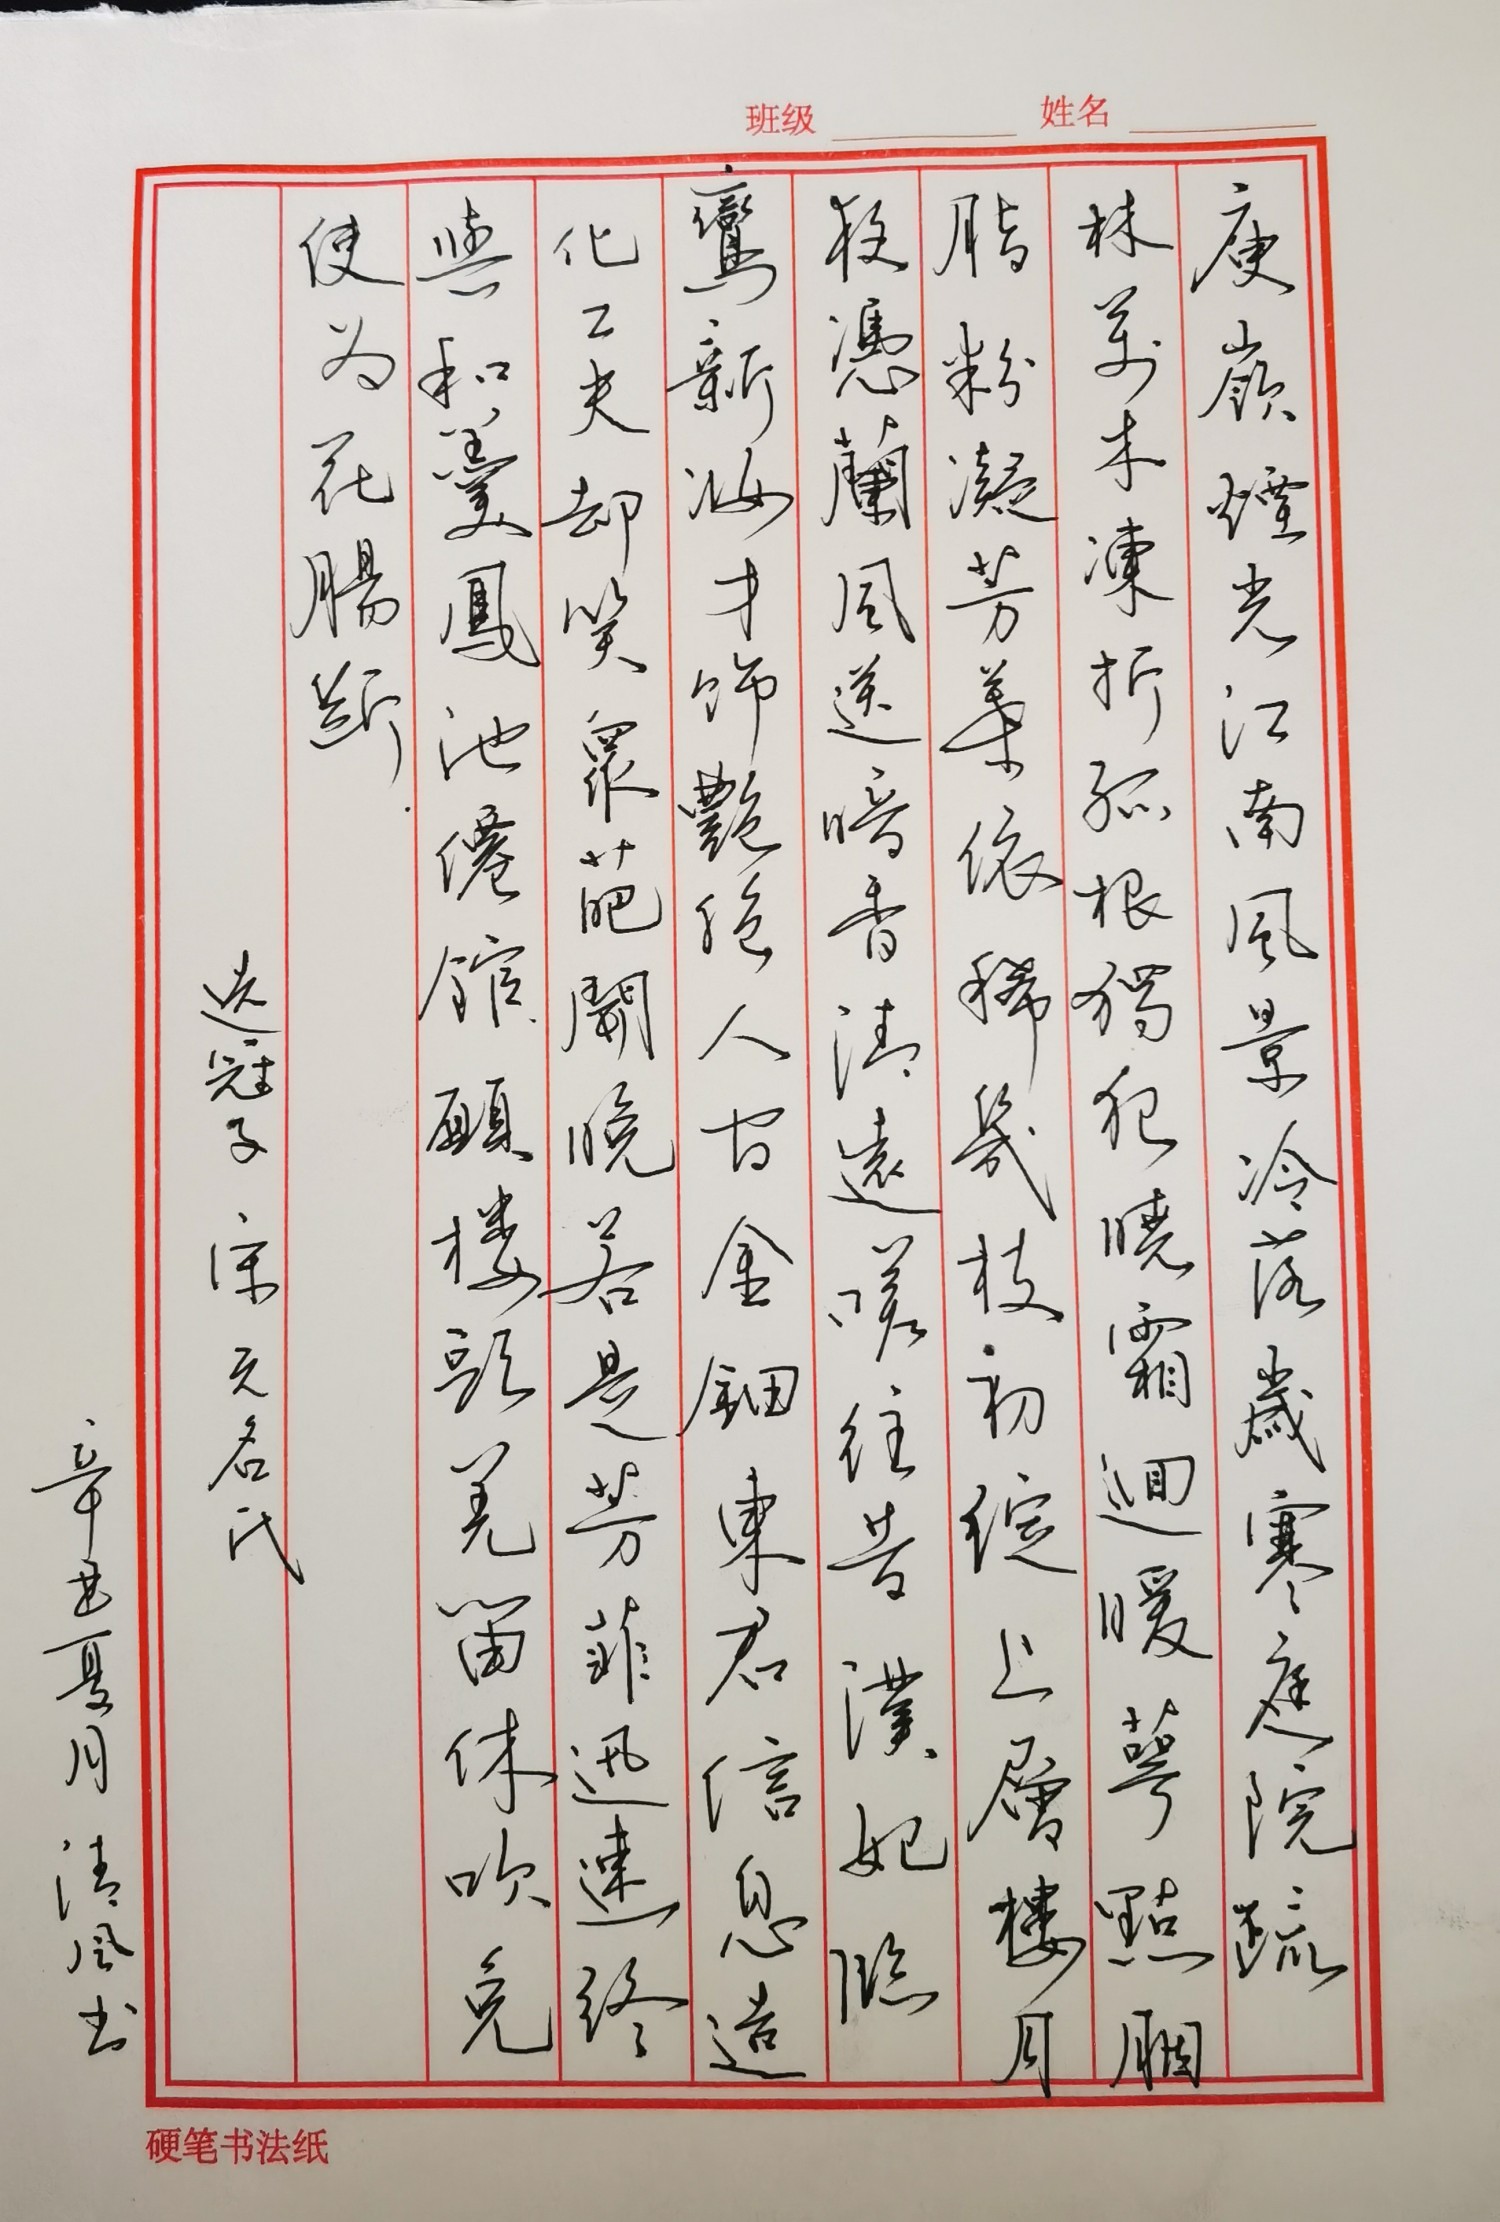 班级 姓名
庾嶺煙光江南風景冷落歲寒庭院疏
林万木凍折孤根獨犯曉霜迴暖萼點胭
脂粉凝芳葉依稀幾枝初綻上層樓月
夜憑蘭風送暗香清遠嗟往昔漢妃臨
鸞新妝才飾艷絕人间金鈿東君信息造
化工夫却笑衆葩開晚若是芳菲迅速終
與和羹鳳池僊館顧楼头羌笛休吹免
使为花腸斷
选冠子 宋 无名氏
辛丑夏月 清风书
硬笔书法纸